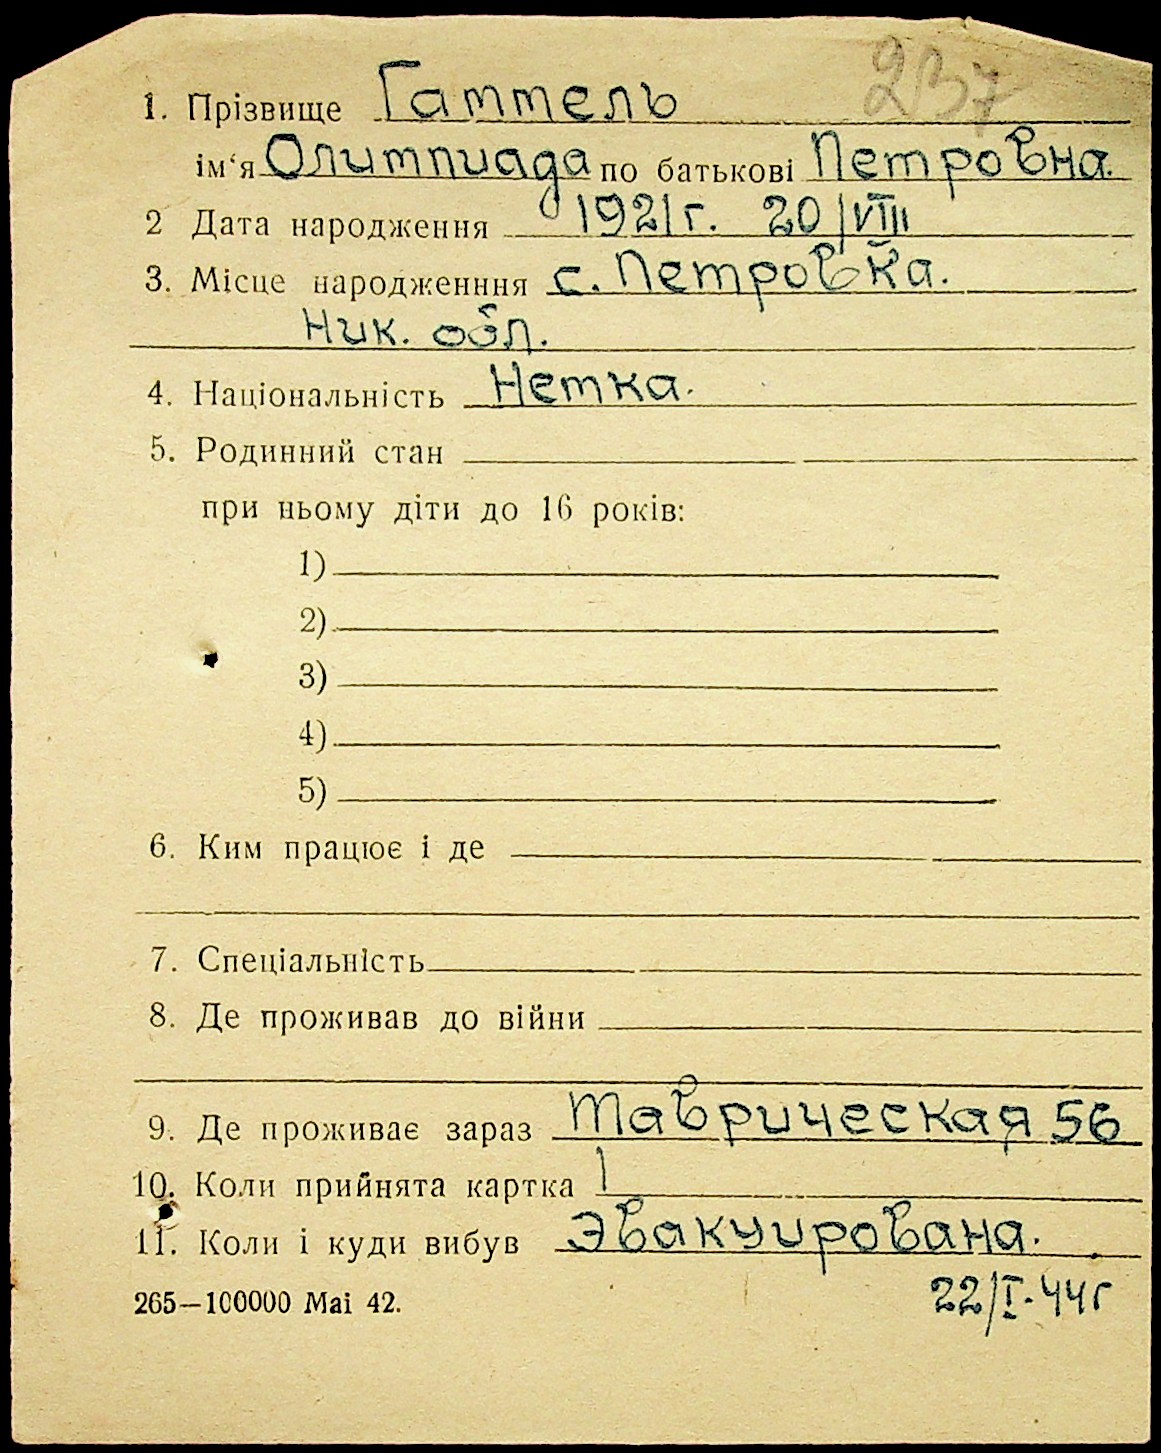 237
1. Прізвище Гаттель
ім'я Олимпиада по батькові Петровна.
2 Дата народження 1921г. 20/VIII
3. Місце народженння с. Петровка.
Ник. обл.
4. Національність Нетка.
5. Родинний стан
при ньому діти до 16 років:
1)
2)
3)
4)
5)
6. Ким працює і де
7. Спеціальність
8. Де проживав до війни
9. Де проживає зараз Таврическая 56
10. Коли прийнята картка
11. Коли і куди вибув Эвакуирована.
265—100000 Mai 42.
22/I-44г